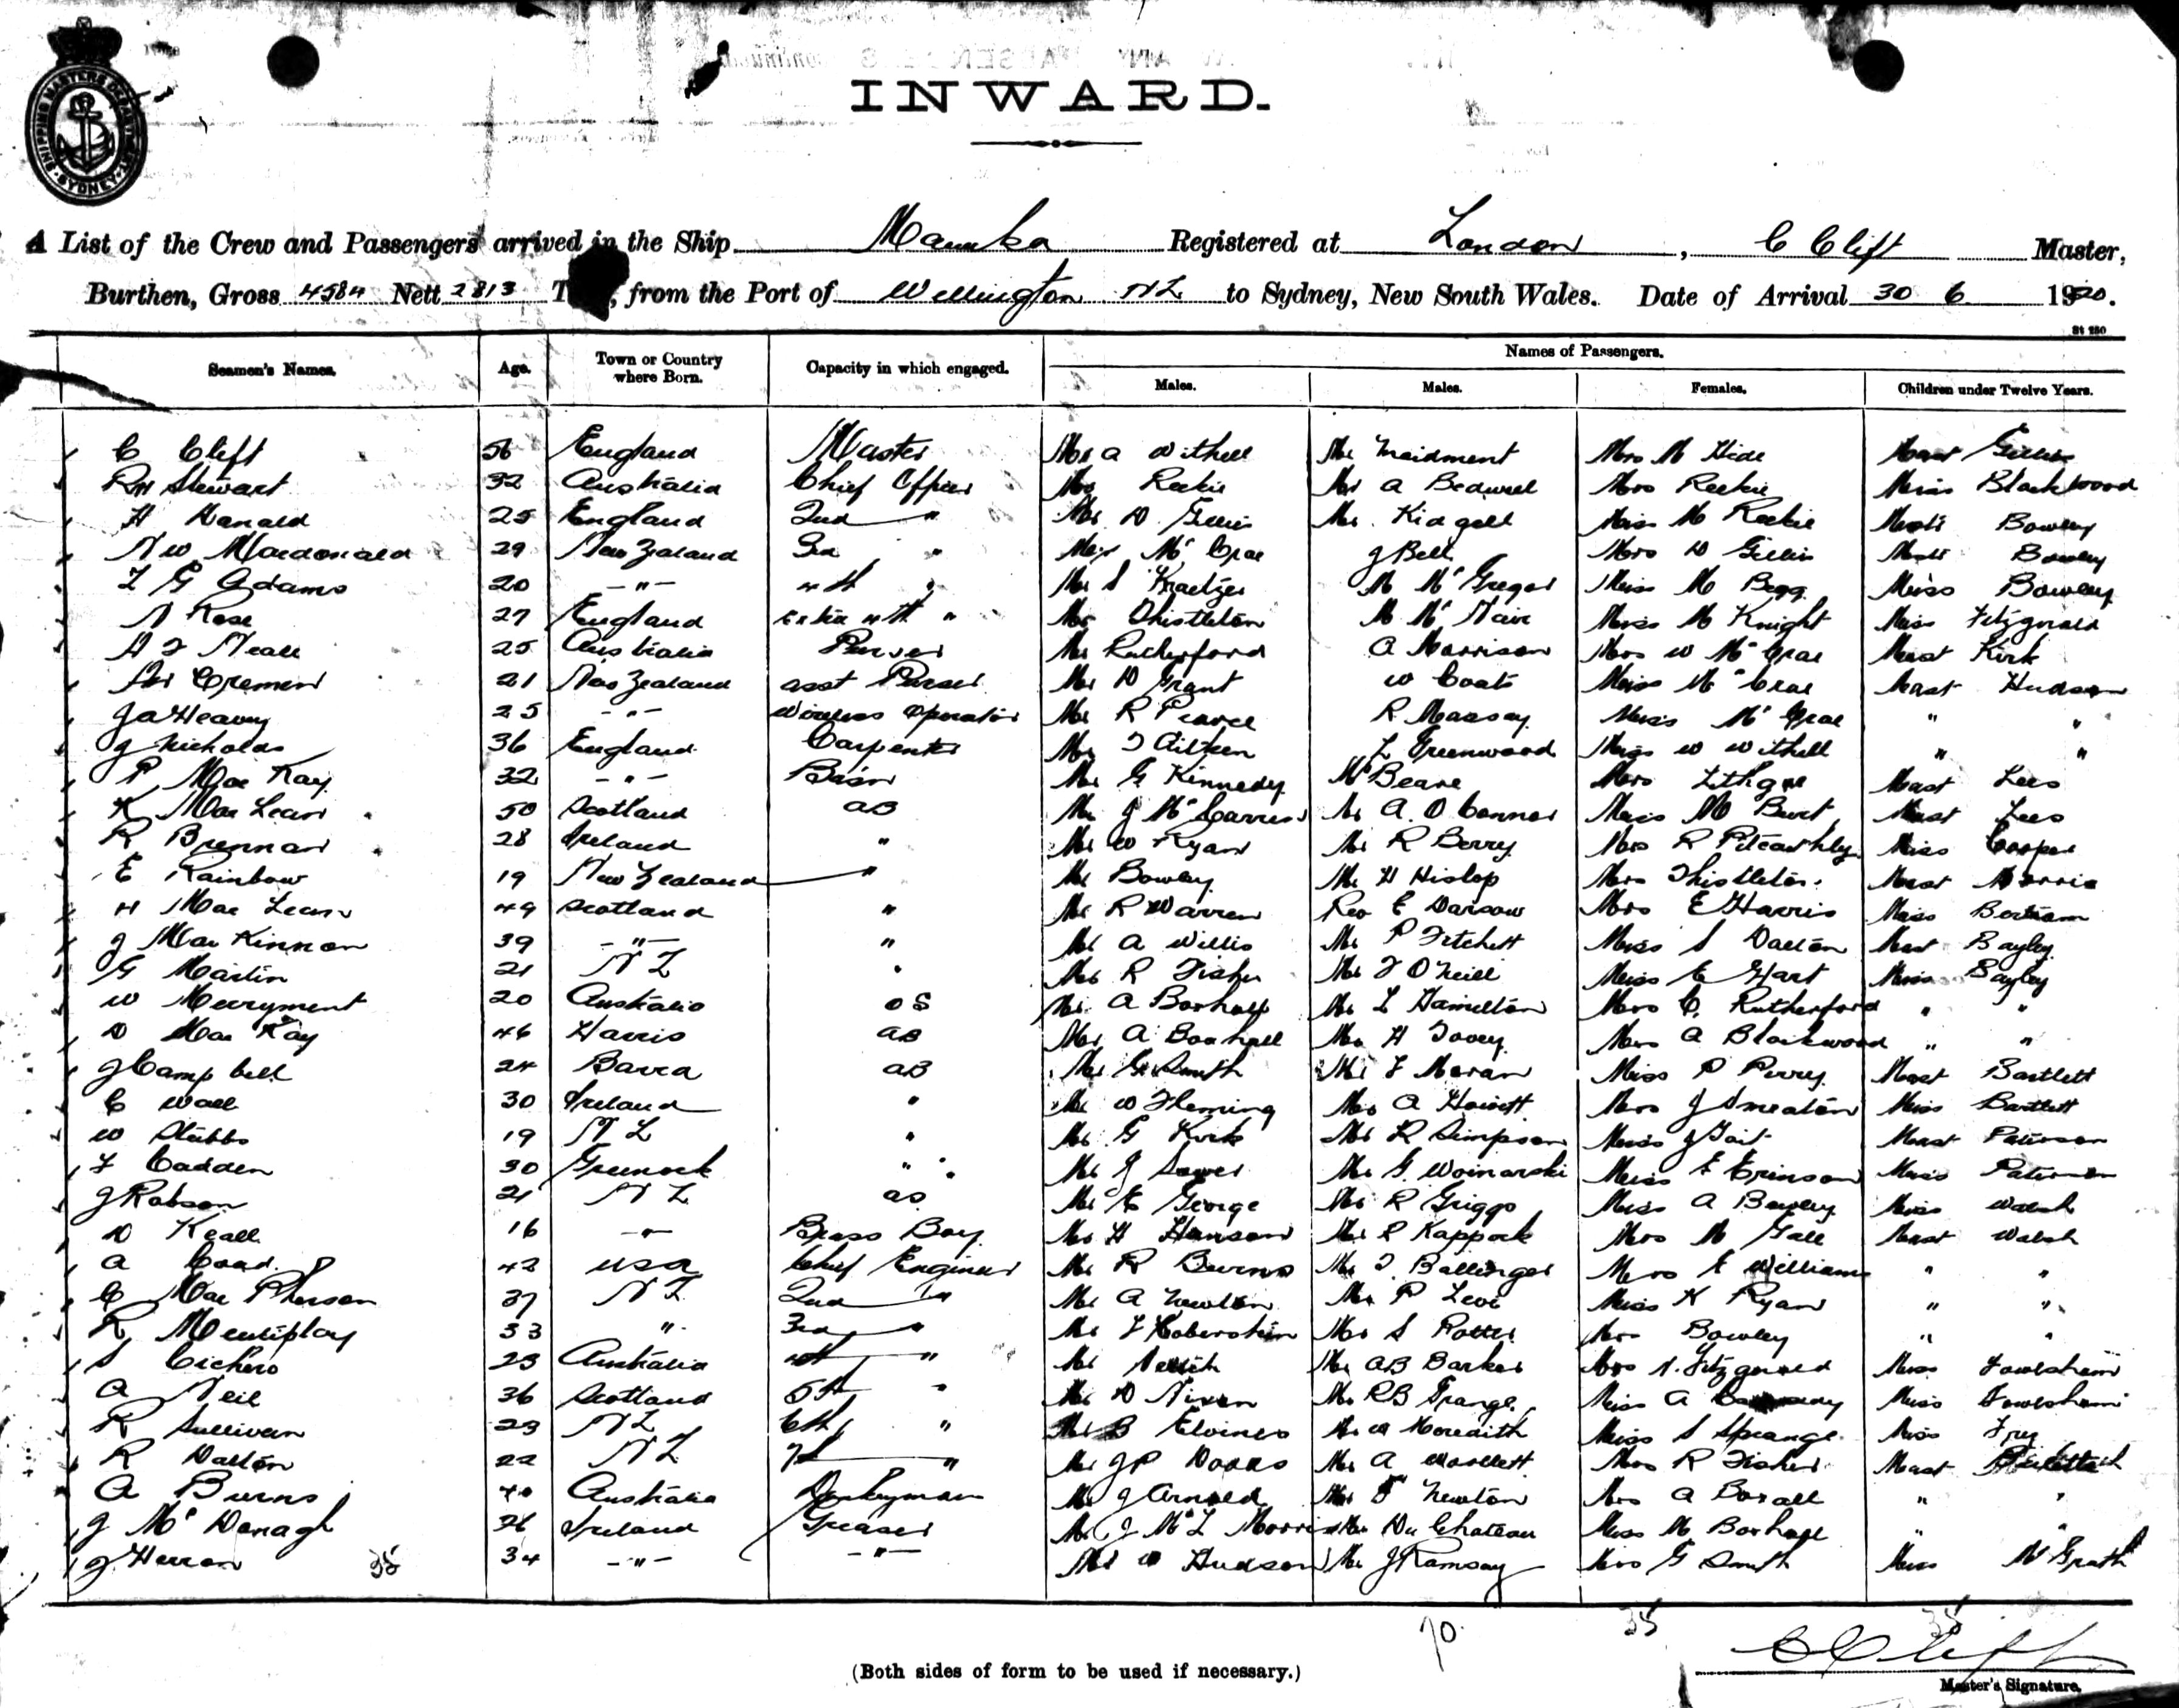 INWARD.
SHIPPING MASTERS DEPARTMENT SYDNEY
A List of the Crew and Passengers arrived in the Ship Manuka Registered at London, C Clift Master,
Burthen, Gross 4584 Nett 2813 T, from the Port of Wellington NZ to Sydney, New South Wales. Date of Arrival 30 6 1920.
St 250
Seamen's Names. Age. Town or Country where Born. Capacity in which engaged. Names of Passengers.
Males. Males. Females. Children under Twelve Years.
C Clift 56 England Master Mr A Withell Mr Maidment Mrs M Hide Mast Gillies
RH Stewart 32 Australia Chief Officer Mr Reekie Mr A Bedwell Mrs Reekie Miss Blackwood
H Donald 25 England 2nd " Mr D. Gillies Mr. Kidgell Miss M Reekie Mast Bowley
N W Macdonald 29 New Zealand 3rd " Mr Mc Crae J Bell Mrs D Gillies Mast Bowley
L G Adams 20 -"- 4th " Mr S Kraetzer M Mc Gregor Miss M Begg Miss Bowley
N Rose 27 England Extra 4th " Mr Thistleton M Mc Nair Miss M Knight Miss Fitzgerald
A J Neall 25 Australia Purser Mr Rutherford A Morrison Mrs W Mc Crae Mast Kirk
Cremen 21 New Zealand Asst Purser Mr D Grant W Coats Miss Mc Crae Mast Hudson
J A Heavey 25 -"- Wireless Operator Mr R Pearce R Massay Miss Mc Crae " "
J Nicholds 36 England Carpenter Mr J Aitken L Greenwood Miss W Withell " "
P Mac Kay 32 -"- Bosn Mr G Kennedy Mc Beare Mrs Lithgoe Mast Lees
K Mac Lean 50 Scotland AB Mr J Mc Mr A. O Connor Miss M Burt Mast Lees
R Brennan 28 Ireland " Mr W Ryan Mr R Berry Mrs R Piteathly Miss Cooper
E Rainbow 19 New Zealand " Mr Bowley Mr H Hislop Mrs Thistleton Mast Morris
H Mac Lean 49 Scotland " Mr R Warren Rev E Darsow Mrs E Harris Miss Bertram
J Mac Kinnon 39 -"- " Mr A Willis Mr P Fitchett Miss S Dalton Mast Bayley
G Martin 21 N Z " Mr R Fisher Mr J O Neill Miss E Hart Miss Bayley
W Merryment 20 Australia OS Mr A Boxhall Mr L Hamilton Mrs C. Rutherford " "
D Mac Kay 46 Harris AB Mr A Boxhall Mr H Tovey Mrs A Blackwood " "
J Campbell 24 Barra AB Mr G Smith Mr F Moran Miss P Perry Mast Bartlett
C Wall 30 Ireland " Mr W Fleming Mr A Howett Mrs J Smeaton Miss Bartlett
W Stubbs 19 N Z " Mr G Kirk Mr R Simpson Miss J Tait Mast Paterson
F Cadden 30 Greenock " Mr J Mr G. Woinarski Miss E Erinson Miss Paterson
J Robson 21 N Z OS Mr E George Mr R Griggs Miss A Bowley Miss Walsh
D Keall 16 -"- Brass Boy Mr H Hanson Mr R Kappock Mrs M Gall Mast Walsh
A Coad 42 USA Chief Engineer Mr R Burns Mr J. Ballinger Mrs E Williams " "
C Mac Pherson 37 N Z 2nd " Mr A Newton Mr P Levi Miss K Ryan " "
R Mentiplay 33 " 3rd " Mr F Haberstein Mr S Potter Mrs Bowley " "
S Cichero 23 Australia 4th " Mr Mr AB Barker Mrs N. Fitzgerald Miss Fowlsham
A Neil 36 Scotland 5th " Mr D Nixon Mr RB Grange Miss A Miss Fowlsham
R Sullivan 23 N Z 6th " Mr B Elvines Mr W Meredith Miss S Sprange Miss Frey
R Dalton 22 N Z 7th " Mr J P Dodds Mr A Woollett Mrs R Fisher Mast
A Burns 40 Australia Donkeyman Mr J Arnold Mr F Newton Mrs A Boxall " "
J Mc Donagh 36 Ireland Greaser Mr J McL Morris Mr Du Chateau Miss M Boxhall " "
J Herron 34 -"- -"- Mr W Hudson Mr J Ramsay Mrs G Smith Miss Mc Grath
35 70. 35 35
C Clift
(Both sides of form to be used if necessary.)
Master's Signature.